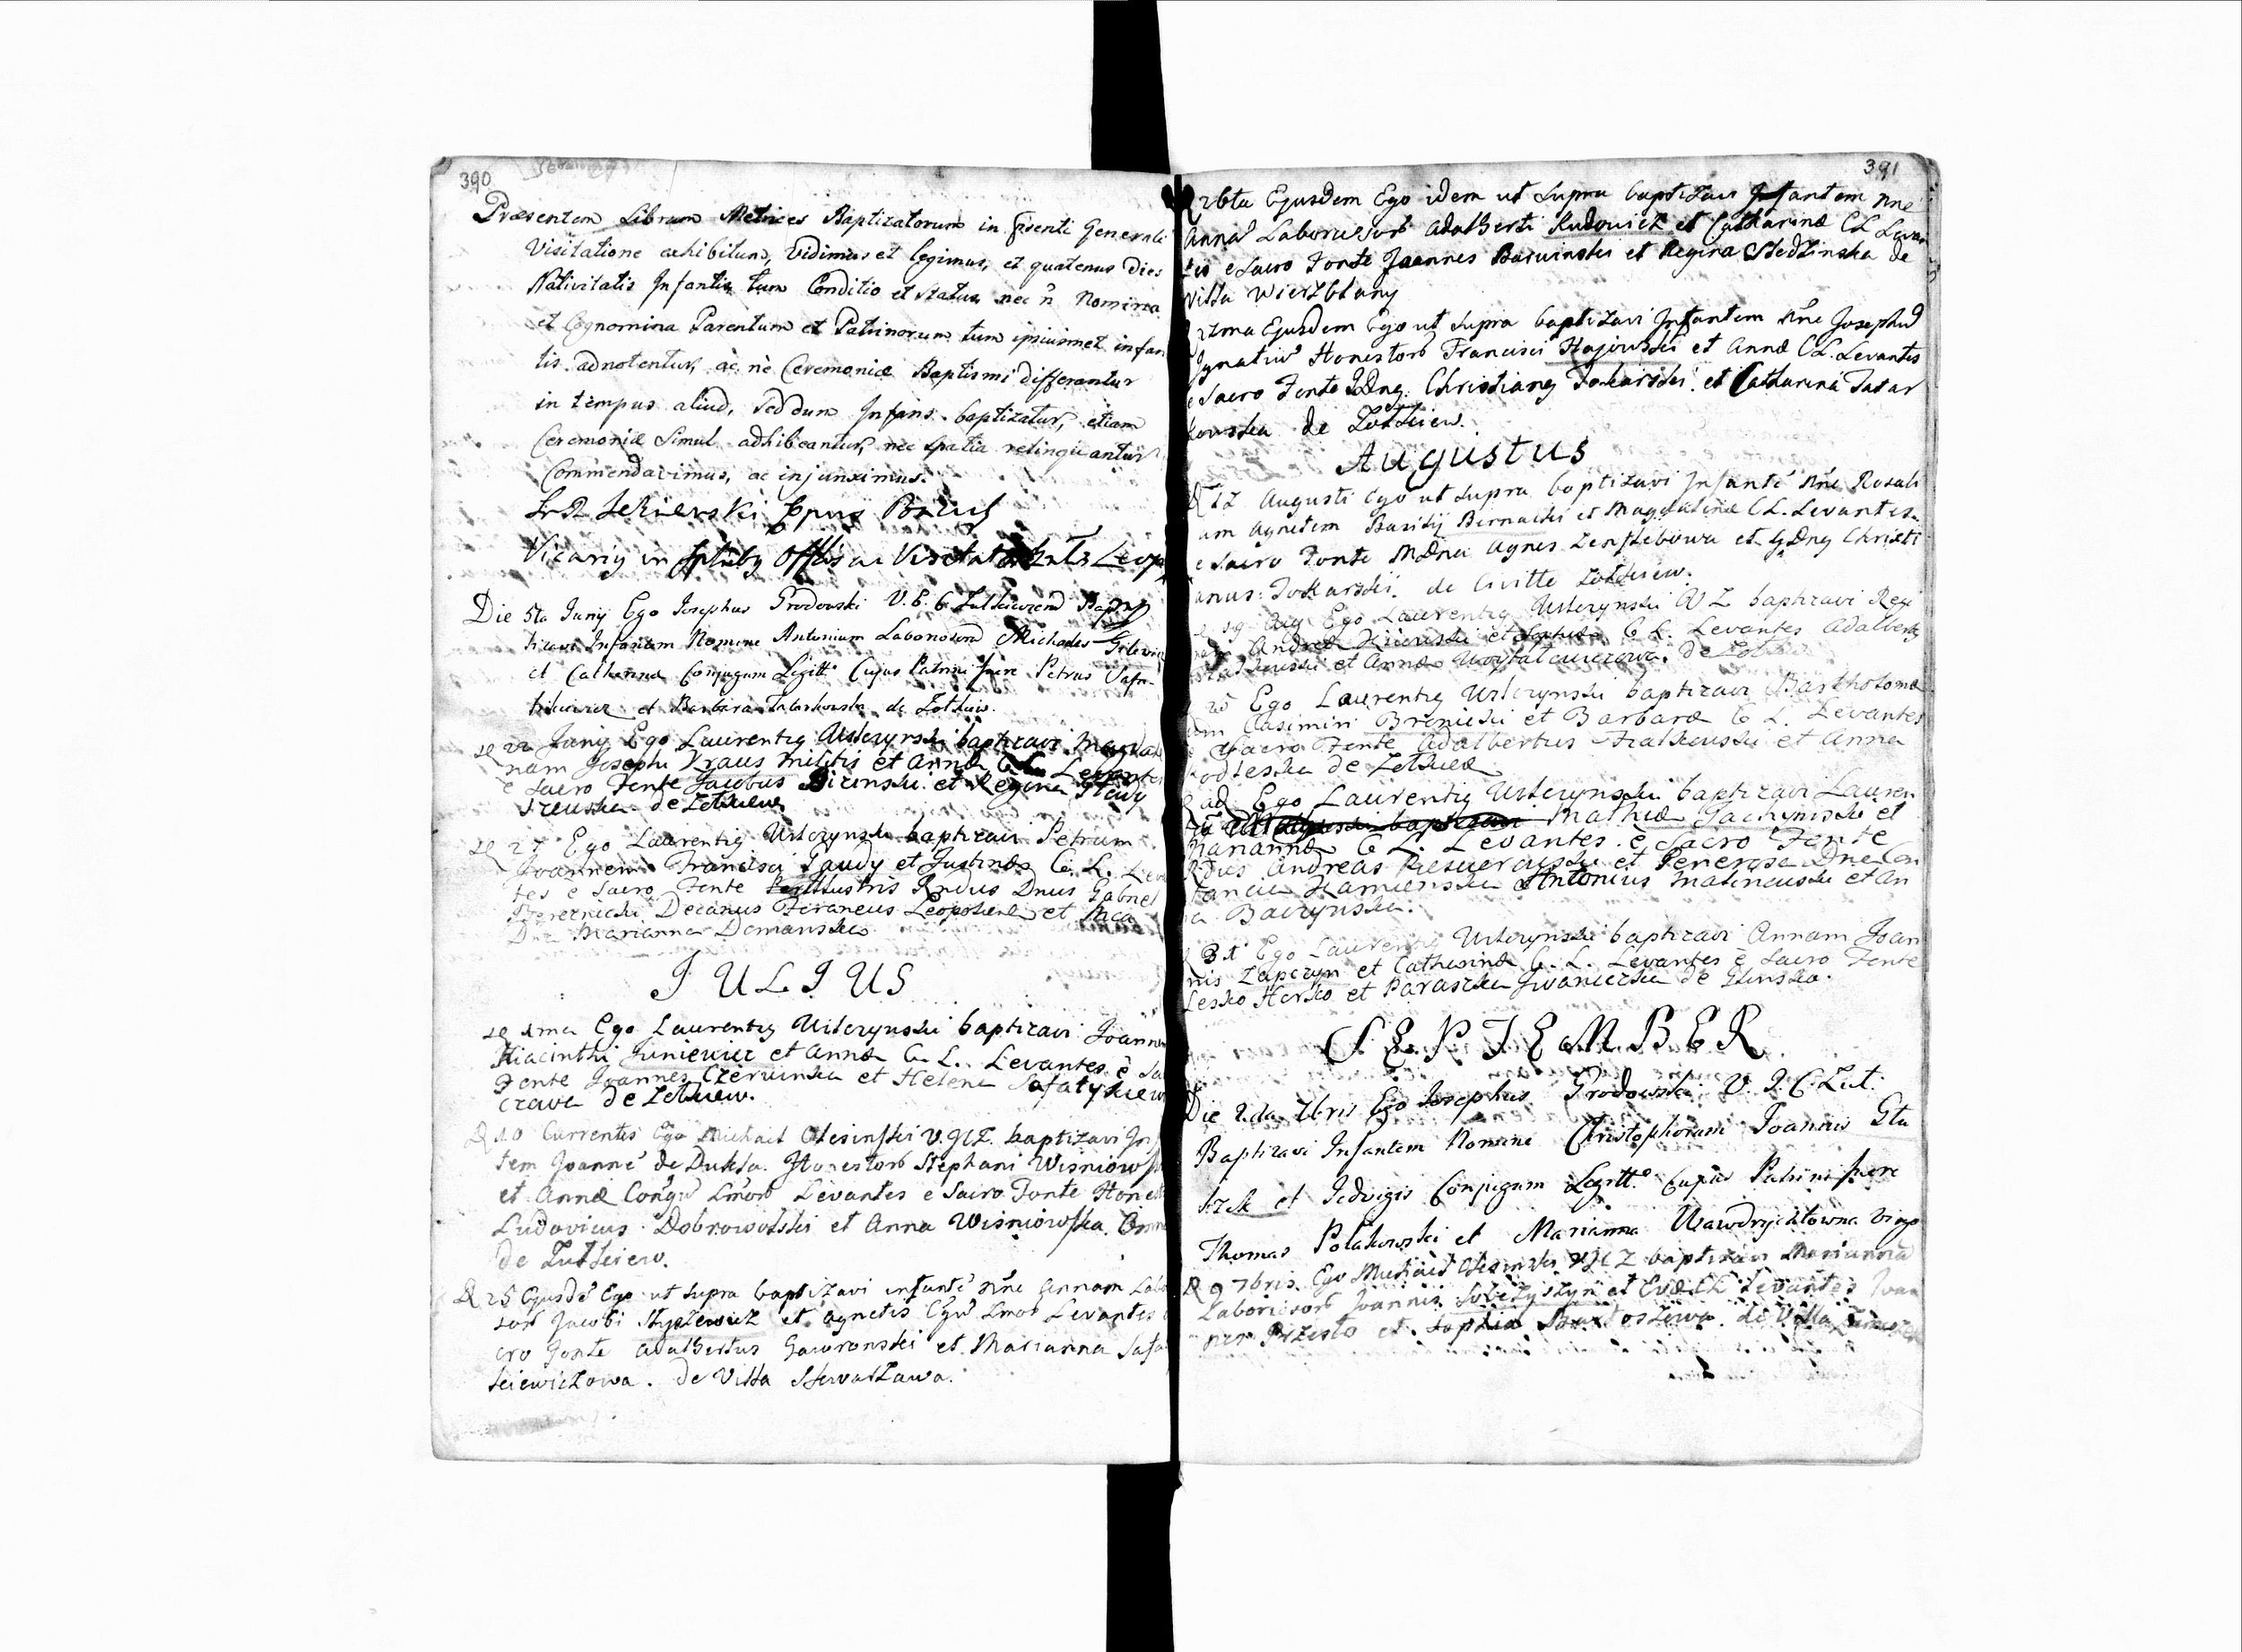 390
Præsentem Librum Metrices Baptizatorum in Prsenti Generali
Visitatione exhibitum, Vidimus et legimus, et quatenus Dies
Nativitatis Infantis tum Conditio et Status nec n̄ Nomina
et Cognomina Parentum et Patrinorum tum ipsiusmet infan
tis adnotentur, ac nè Ceremoniæ Baptismi differantur
in tempus aliud, sed dum Infans baptizatur, etiam
Ceremoniæ Simul adhibeantur, nec spatia relinquantur
Commendavimus, ac injunximus.
Epus
Vicariꝯ in Offlis ac Visitat Leop
Die 5ta Junij Ego Josephus Grodowski V. E. C. Zulkiewiens
tizavi Infantem Nomine Antonium Laboriosorum Michaelis
et Catharina Conjugum Legitt. Cujus Patrini fuere Petrus Safa-
tikiewicz et Barbara Tatarkowska de Zołkiew.
22 Junij Ego Laurentiꝯ Usterzynski baptizavi Magdale
nam Josephi Kraus militis et Annæ C. L. Levantes
è Sacro Fonte Jacobus et Regina
de Zołkiew
27 Ego Laurentiꝯ Usterzynski baptizavi Petrum
Joannem Francisci Gaudy et Justinæ C. L. Leva
tes è Sacro Fonte Perillustris Rndus Dnus Gabriel
Decanus Foraneus Leopolien et
Dna Marianna Domanska
JULIUS
1ma Ego Laurentiꝯ Usterzynski baptizavi Joannem
Hiacinthi Juniewicz et Annæ C. L. Levantes è Sa
Fonte Joannes Czerwinski et Helena Safatykiew
czowa de Zołkiew.
D 10 Currentis Ego Michael Olesinski V. baptizavi In
tem Joannē de Dukla. Honestorū Stephani Wisniowski
et Annæ Levantes e Sacro Fonte Honest
Ludovicus Dobrowolski et Anna Wisniowska
de Zułkiew.
D 25 Ejusdē Ego ut Supra baptizavi infantē nñe Annam Labo
sorū Jacobi et Agnetis Levantes e
cro Fonte Adalbertus Gaworonski et Marianna Safa
kiewiczowa. de Villa
391
26ta Ejusdem Ego idem ut Supra baptizavi Infantem nñe
Annā Laboriosorū Adalberti Rudowicz et Catharinæ CL Levan
tes e Sacro Fonte Joannes Barwinski et Regina Skedzinska de
Villa Wierzblany
27ma Ejusdem Ego ut Supra baptizavi Infantem nñe Josephū
Ignatiū Honestorū Francisci Hajowski et Annæ CL. Levantes
e Sacro Fonte GDnꝯ Christianꝯ Tokarski et Catharina Tatar
kowska de Zołkiew.
Augustus
D 12 Augusti Ego ut Supra baptizavi Infantē nñe Rosali
am Agnetem Basilij Biernacki et Magdalinæ CL. Levantes
e Sacro Fonte MDna Agnes et GDnꝯ Christi
anus Tokarski. de Civitte Zołkiew.
19 Aug Ego Laurentiꝯ Usterzynski V Z baptizavi Regi
nam Andreæ et C. L. Levantes Adalbertꝯ
et Anna
20 Ego Laurentiꝯ Usterzynski baptizavi Bartholome
um Casimiri et Barbaræ C. L. Levantes
è Sacro Fonte Adalbertus et Anna
de Zołkiew
Ego Laurentiꝯ Usterzynski baptizavi Lauren
Mathiæ Jachymski et
Mariannæ C. L. Levantes è Sacro Fonte
Rdus Andreas et Generosa Dna Con
stancia Kamienska Antonius Malinowski et An
na Baczynska.
31 Ego Laurentiꝯ Usterzynski baptizavi Annam Joan
nis et Catherinæ C. L. Levantes è Sacro Fonte
Lesko Horko et Paraska Iwanicka de Glinsko.
SEPTEMBER
Die 2da 7bris Ego Josephus Grodowski V. Zut:
Baptizavi Infantem Nomine Christophorum Joannis Sta
szk et Jedvigis Conjugum Legitt. Cujus Patrini fuere
Thomas Polakowski et Marianna Wawdrychtowna Virgo
D 9 7bris Ego Michael Olesinski V Z baptizavi Mariannā
Laboriosorū Joannis et Evæ CL Levantes
et Sophia de Villa